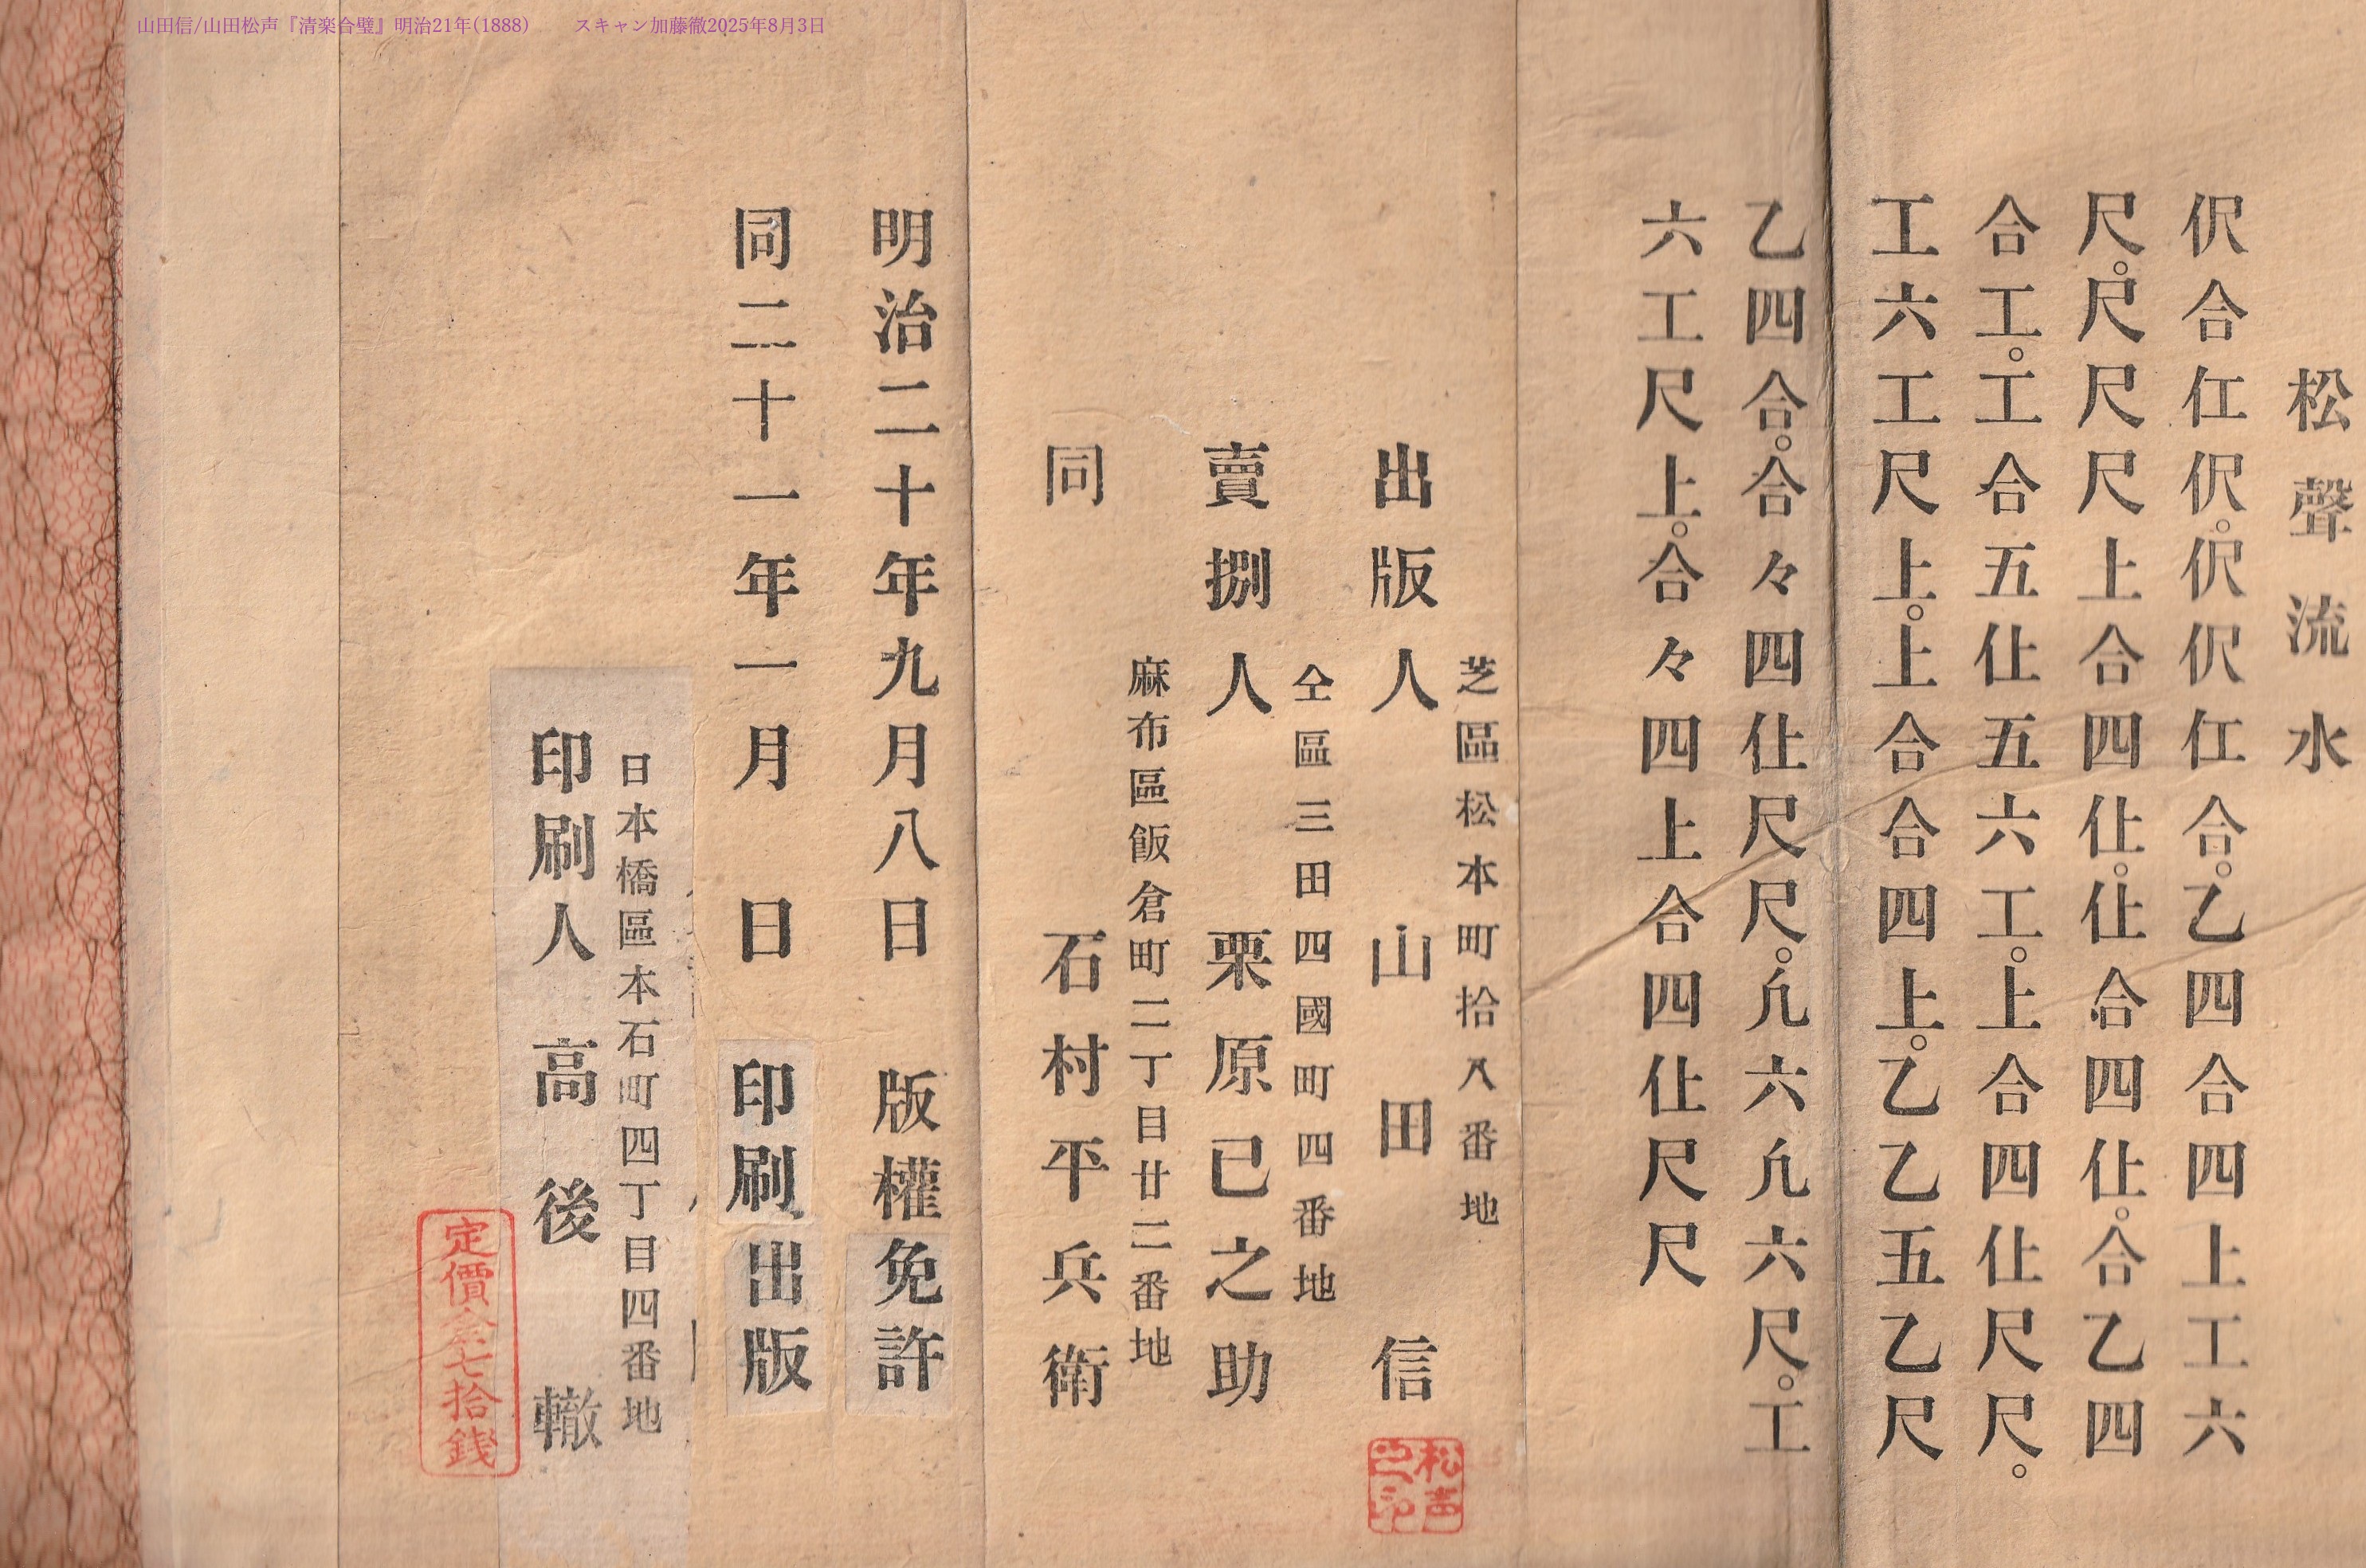 山田信/山田松声『清楽合璧』明治21年(1888)　　スキャン加藤徹2025年8月3日
松聲流水
伬合仜伬。伬伬仜合。乙四合四上工六
尺。尺尺尺上合四仩。仩合四仩。合乙四
合工。工合五仩五六工。上合四仩尺尺。
工六工尺上。上合合四上。乙乙五乙尺
乙四合。合々四仩尺尺。凢六凢六尺。工
六工尺上。合々四上合四仩尺尺
芝區松本町拾八番地
出版人　山田信
松声之印
仝區三田四國町四番地
賣捌人　栗原已之助
麻布區飯倉町二丁目廿二番地
同　石村平兵衛
明治二十年九月八日　版權免許
同二十一年一月　日　印刷出版
日本橋區本石町四丁目四番地
印刷人　高後轍
定價金七拾錢